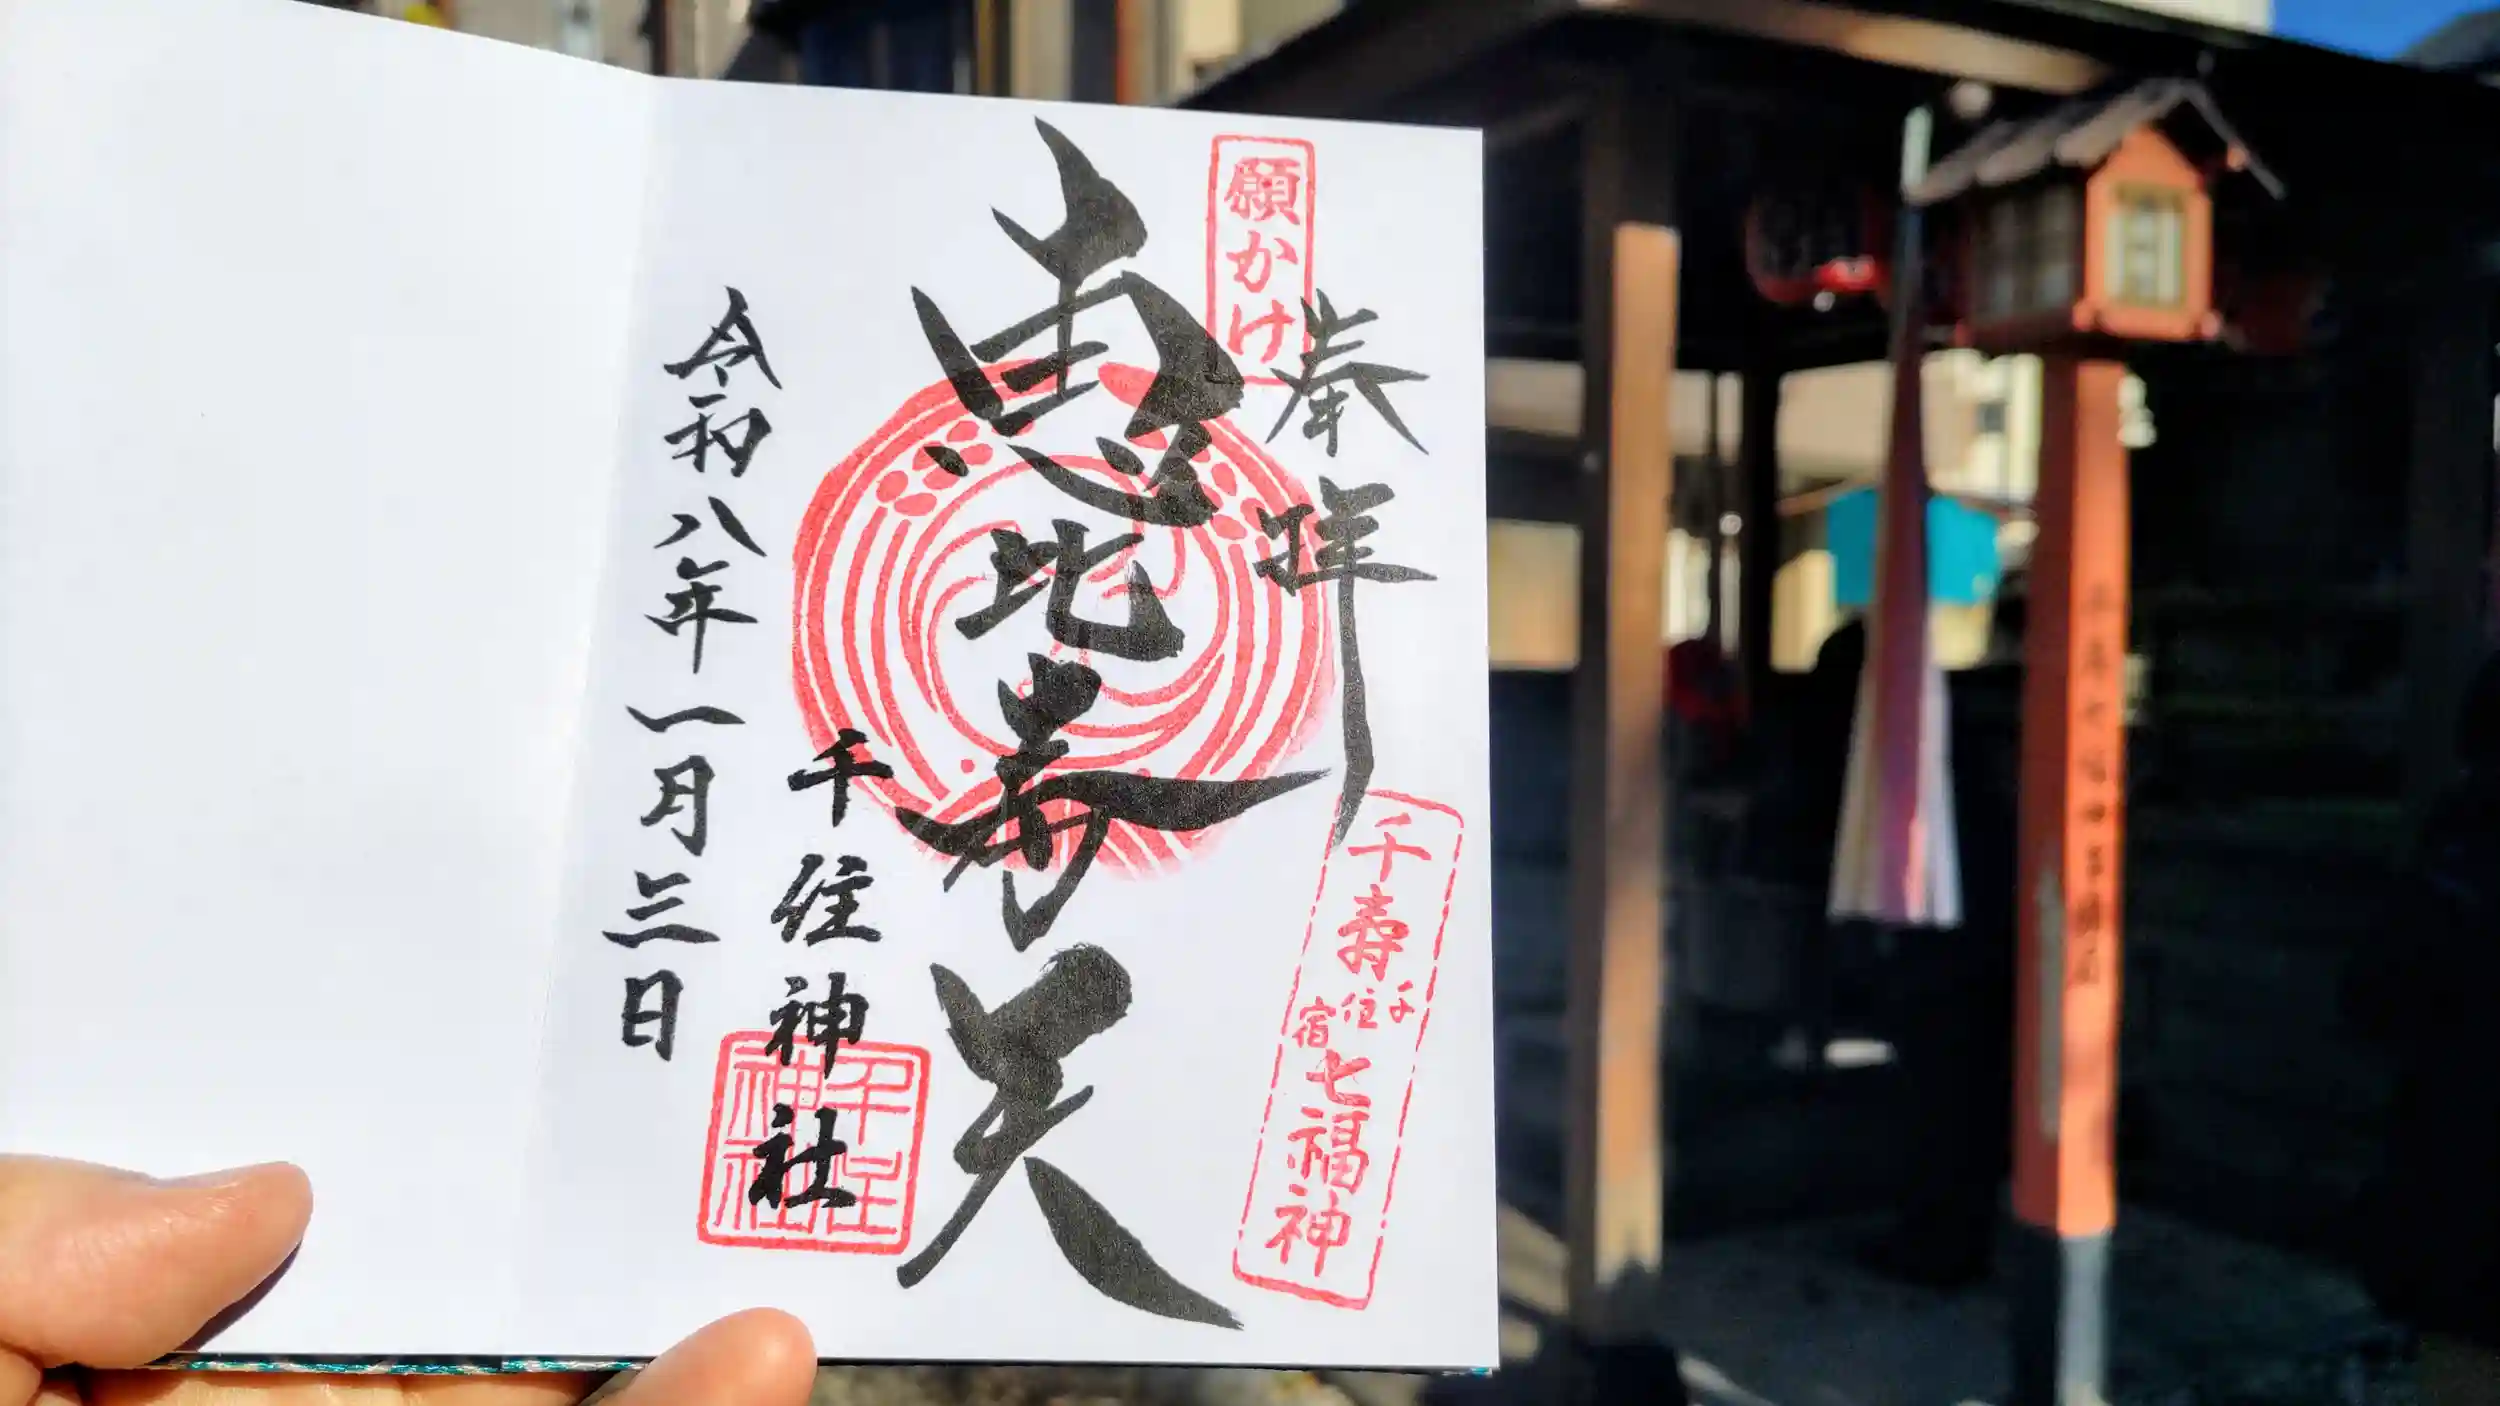 願かけ
奉拝
千寿
千住宿
七福神
恵比寿天
千住神社
千住神社
令和八年一月三日